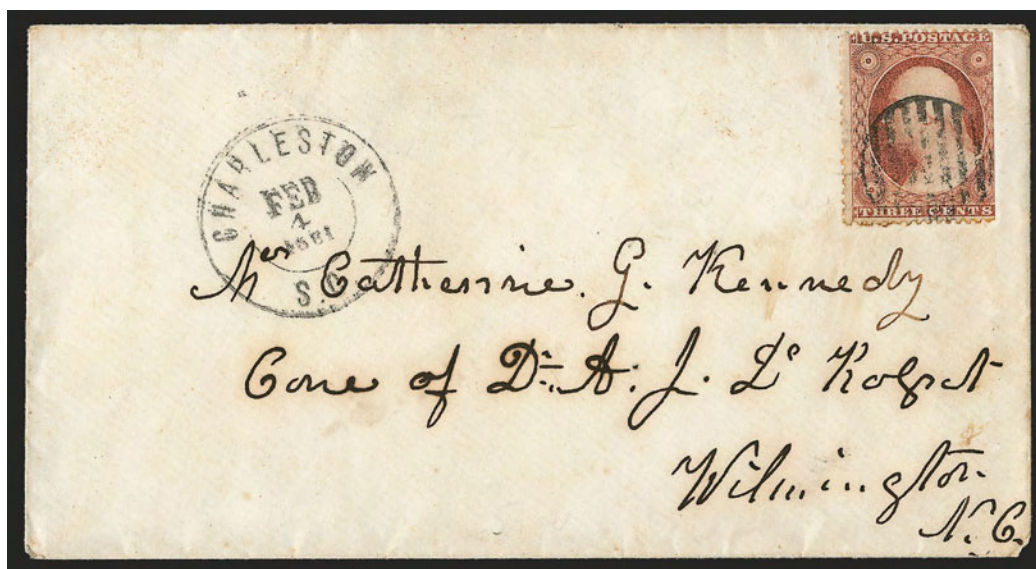 U.S. POSTAGE
THREE CENTS
CHARLESTON
FEB
4
1861
S.C
Mrs Catherine. G. Kennedy
Care of Dr. A. J. De
Wilmington
N. C.